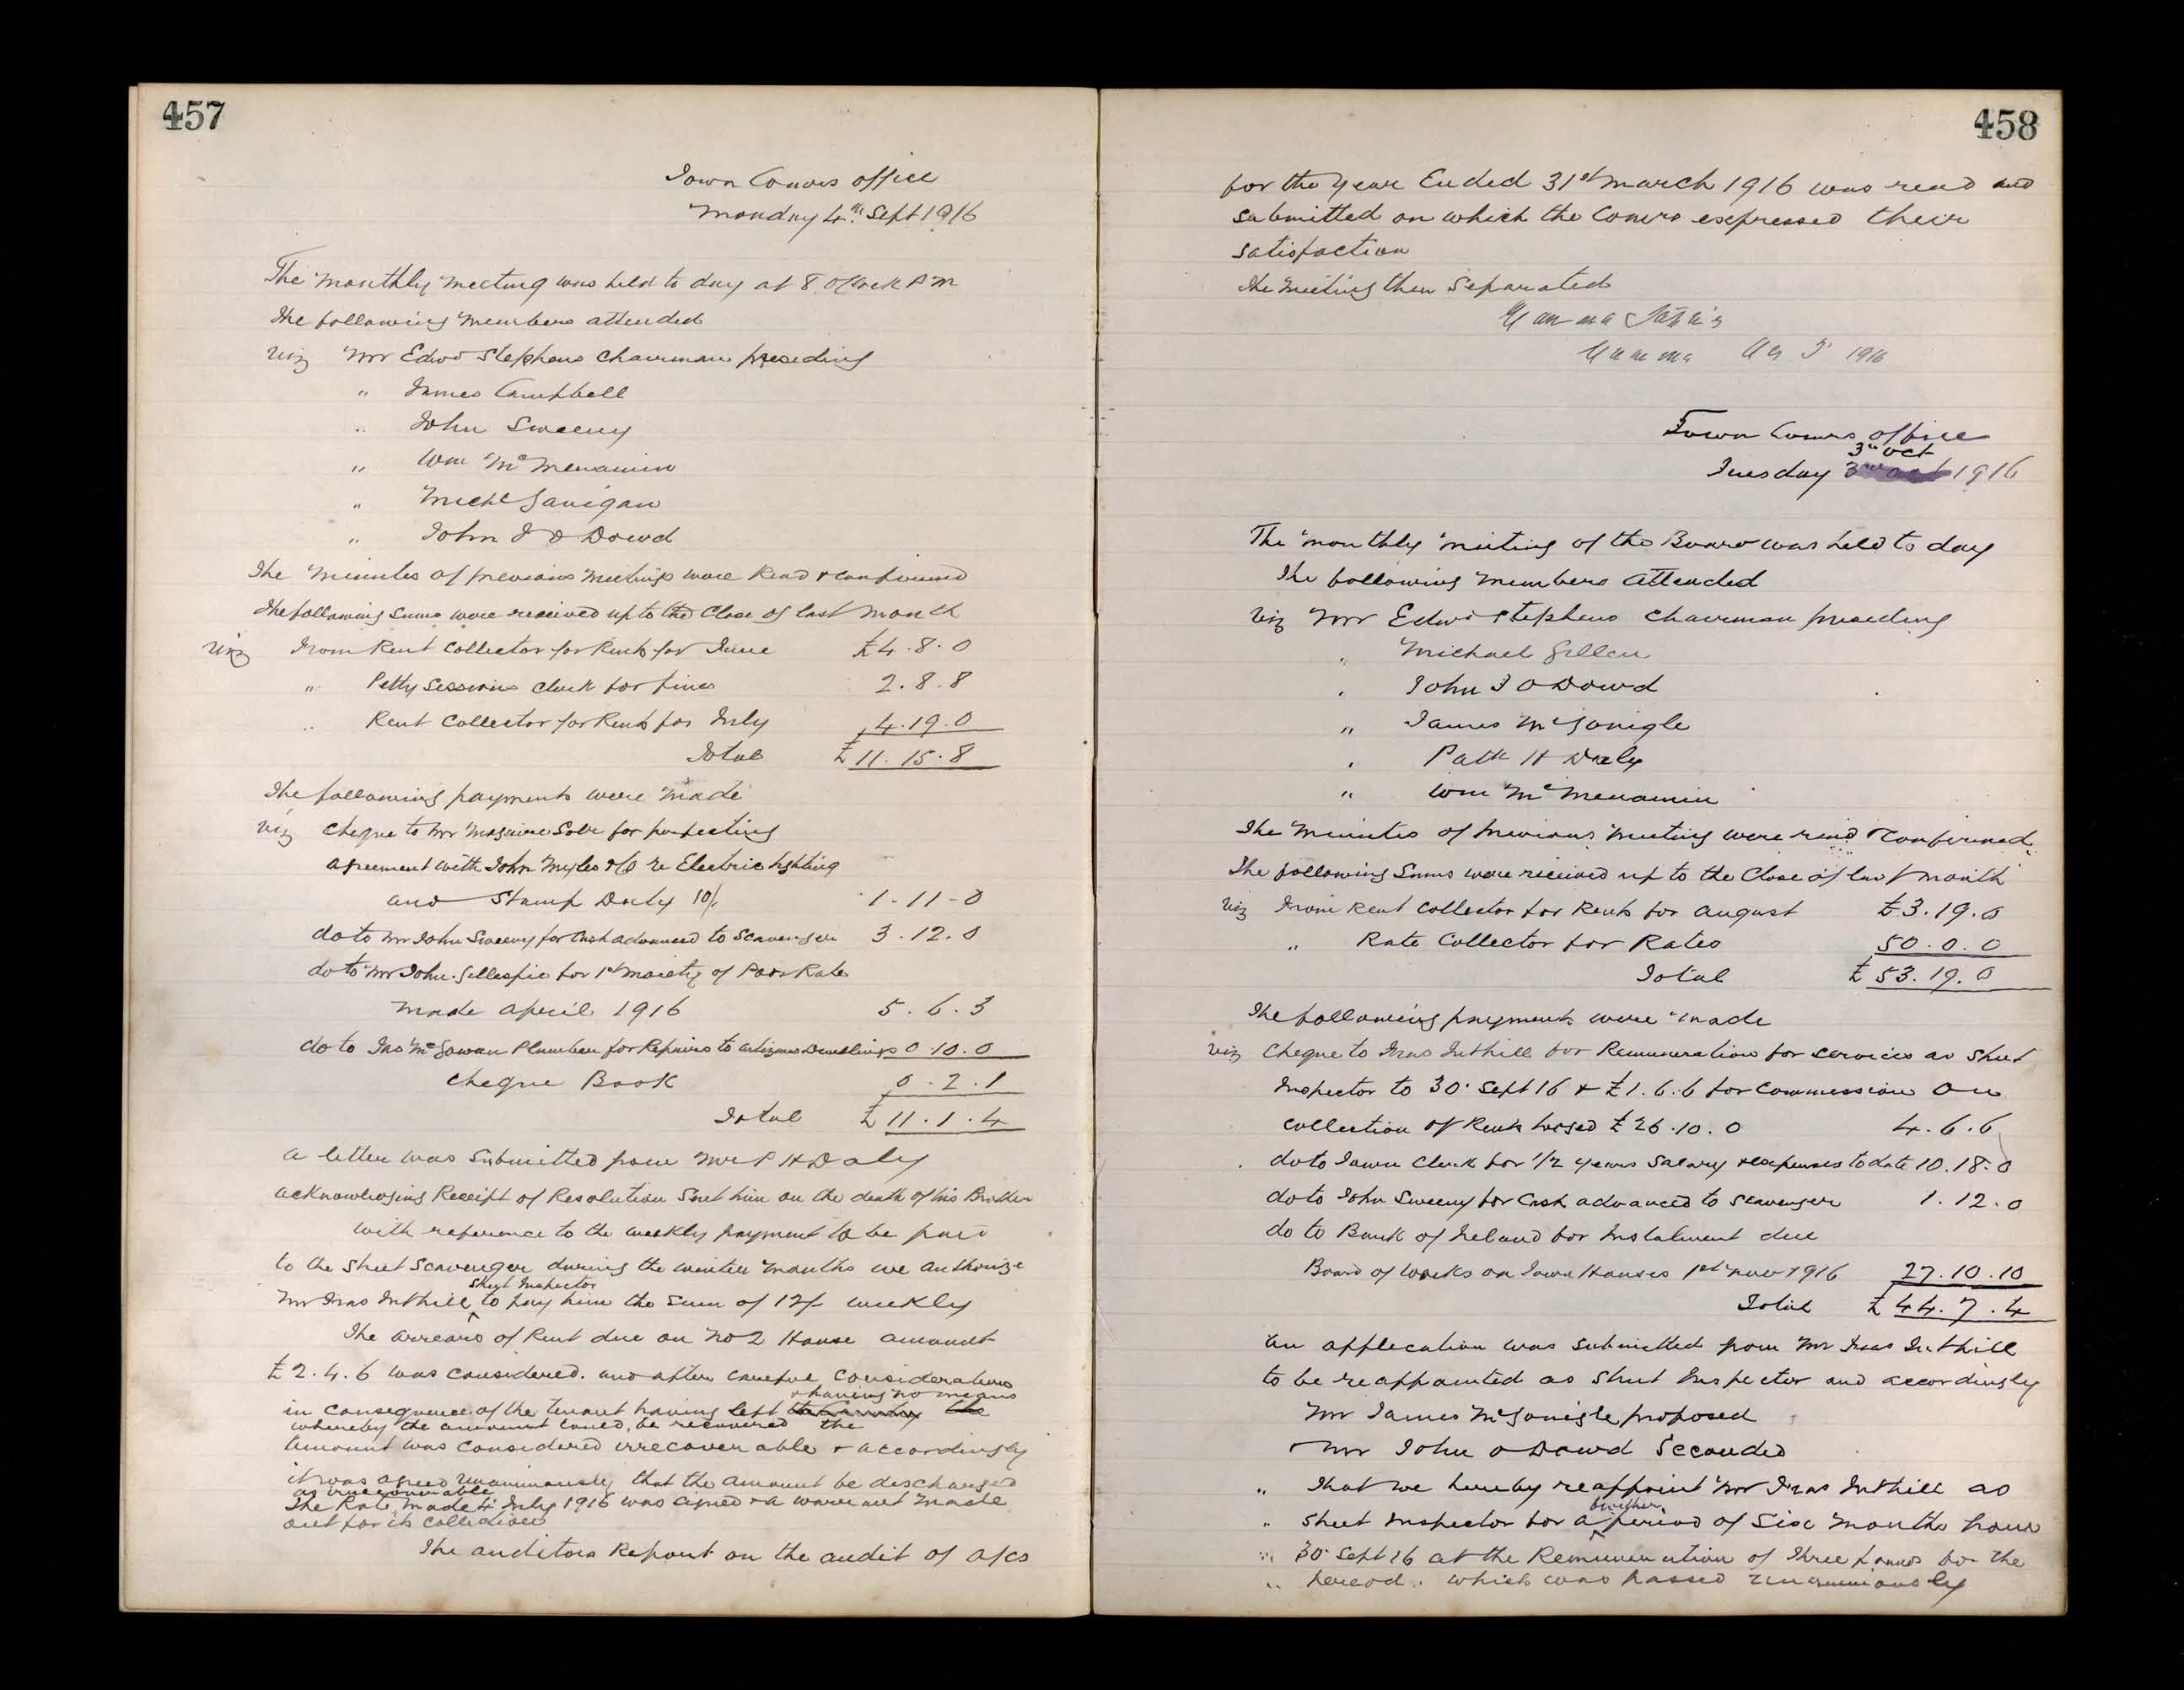 457
Town Comrs office
Monday 4th Sept 1916
The monthly meeting was held to day at 8 oClock P M
The following members attended
viz Mr Edwd Stephens Chairman presiding
" James Campbell
" John Sweeny
" Wm McMenamin
" Michl Gavigan
" John J O Dowd
The minutes of previous meetings were Read & confirmed
The following sums were received up to the Close of last month
viz From Rent Collector for Rents for June £4.8.0
" Petty Sessions Clerk for fines 2.8.8
" Rent Collector for Rents for July 4.19.0
Total £11.15.8
The following payments were made
viz Cheque to Mr Maguire Solr for perfecting
agreement with John Myles & Co re Electric lighting
and Stamp Duty 10/- 1-11-0
do to Mr John Sweeny for Cash advanced to Scavenger 3.12.0
do to Mr John Gillespie for 1st moiety of Poor Rate
made April 1916 5.6.3
do to Jas McGowan Plumber for Repairs to artizans Dwellings 0.10.0
Cheque Book 0.2.1
Total £11.1.4
A letter was Submitted from Mr P H Daly
acknowledging Receipt of Resolution Sent him on the death of his Brother
With reference to the weekly payment to be paid
to the Street Scavenger during the winter months we authorize
Street Inspector
Mr Fras Tuthill to pay him the Sum of 12/- weekly
The arrears of Rent due on No 2 House amount
£2.4.6 was considered. and after careful Consideration
& having no means
in Consequence of the tenant having left the Country the
whereby the amount could be recovered the
amount was considered irrecoverable & accordingly
it was agreed unanimously that the amount be discharged
as irrecoverable
The Rate made 4 July 1916 was signed & a warrant made
out for its collection
The auditors Report on the audit of a/cs
458
for the year Ended 31st March 1916 was read and
submitted on which the Comrs expressed their
satisfaction
The Meeting then Separated
1916
Town Comrs office
3rd Oct
Tuesday 3rd Oct 1916
The monthly meeting of the Board was held to day
The following members attended
viz Mr Edwd Stephens Chairman presiding
" Michael Gillen
" John J O Dowd
" James McGonigle
" Patk H Daly
" Wm McMenamin
The Minutes of previous meeting were read & confirmed
The following Sums were received up to the Close of last month
viz From Rent Collector for Rents for August £3.19.0
" Rate Collector for Rates 50.0.0
Total £53.19.0
The following payments were made
viz Cheque to Fras Tuthill for Remuneration for services as Street
Inspector to 30 Sept 16 & £1.6.6 for Commission on
collection of Rents lodged £26.10.0 4.6.6
do to Town Clerk for 1/2 years Salary & expenses to date 10.18.0
do to John Sweeny for Cash advanced to Scavenger 1.12.0
do to Bank of Ireland for Instalment due
Board of Works on Town Houses 1st Nov 1916 27.10.10
Total £44.7.4
An application was submitted from Mr Fras Tuthill
to be reappointed as Street Inspector and accordingly
Mr James McGonigle proposed
Mr John O Dowd Seconded
" That we hereby reappoint Mr Fras Tuthill as
further
" Street Inspector for a period of Six months from
" 30 Sept 16 at the Remuneration of Three pounds for the
" period. which was passed unanimously